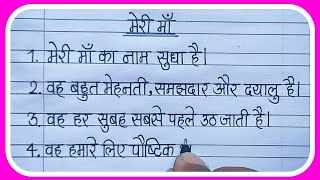 मेरी माँ
1. मेरी माँ का नाम सुधा है।
2. वह बहुत मेहनती, समझदार और दयालु है।
3. वह हर सुबह सबसे पहले उठ जाती है।
4. वह हमारे लिए पौष्टिक